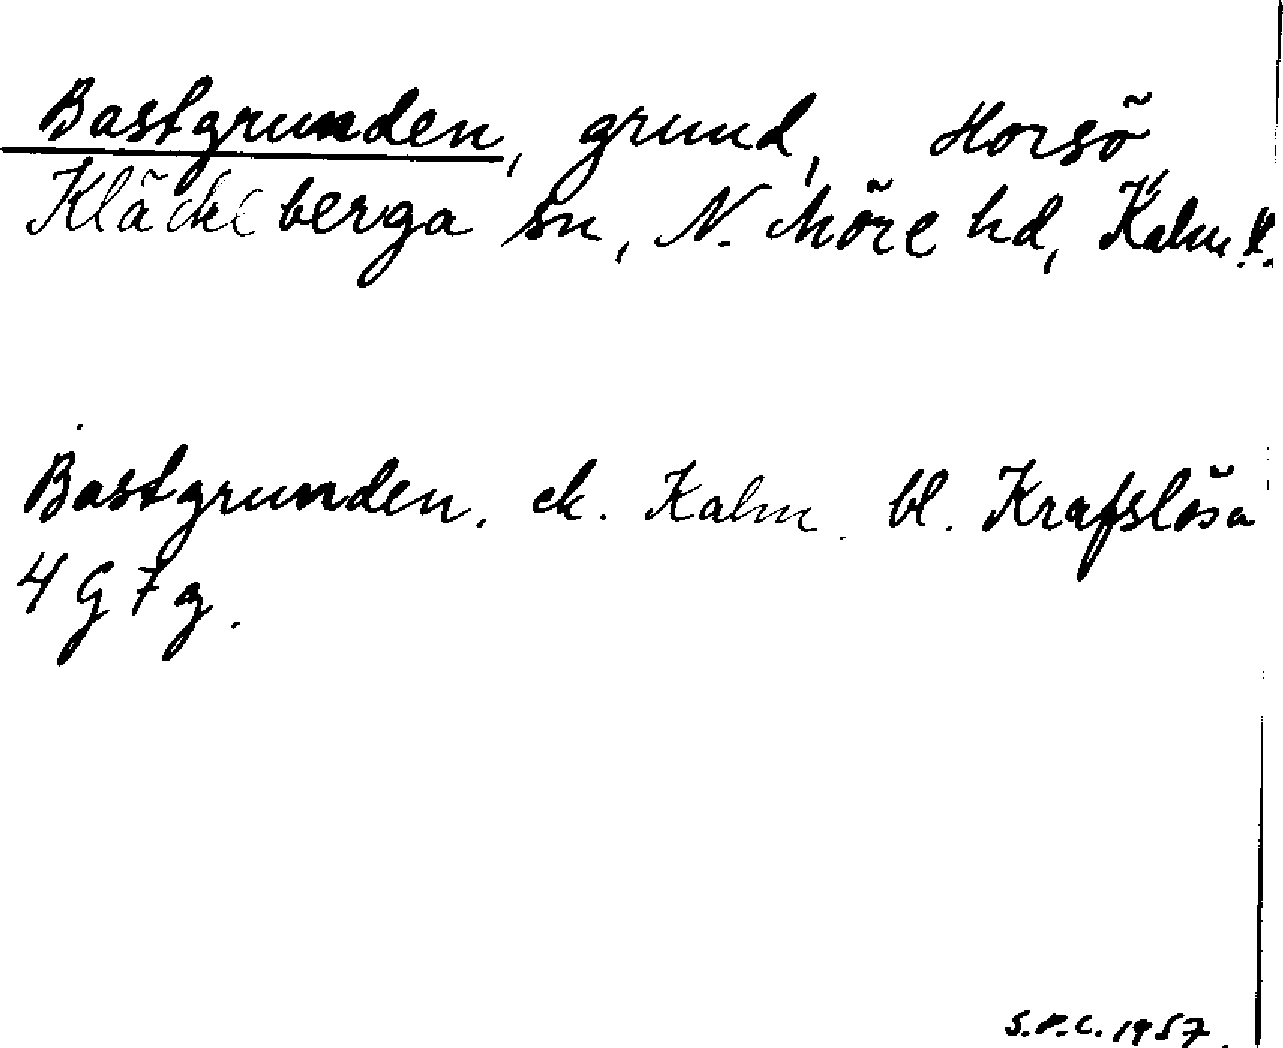 Bastgrunden, grund, Horsö,
Kläckeberga sn, N. Möre hd, Kalm. l.
Bastgrunden. ek. Kalm. bl. Krafslösa
4 G 7 g.
S.P.C. 1957.